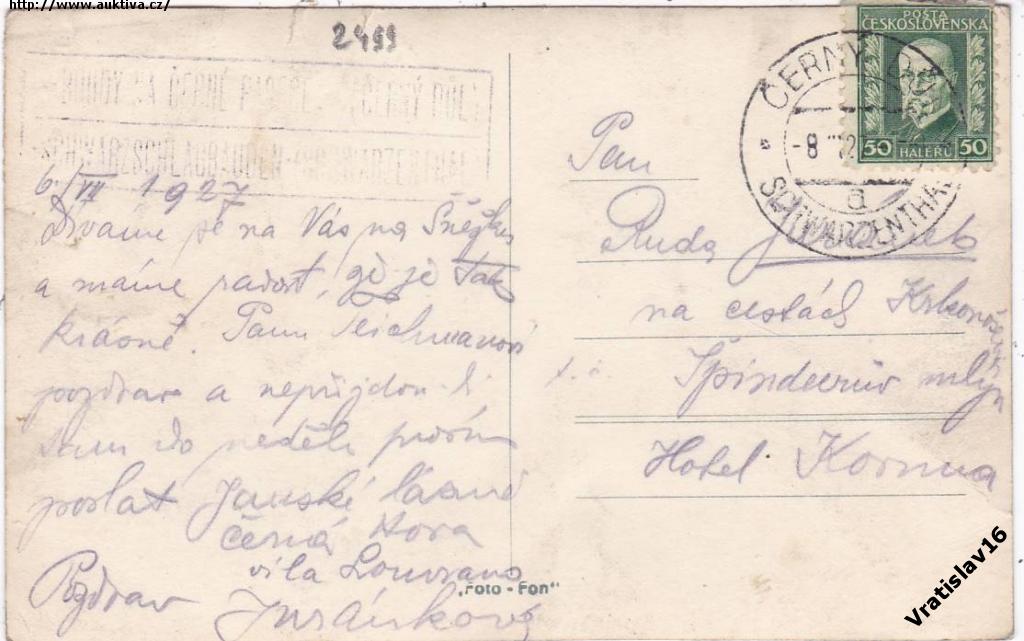 http://www.auktiva.cz/
2499
BOUDY NA ČERNÉ PASECE ČERNÝ DŮL
6./VII 1927
Díváme se na Vás na Sněžku
a máme radost, že je tak
krásně. Panu Teichmanovi
pozdrav a nepřijdou-li
sem do neděle prosím
poslat Janské lázně
černá Hora
vila
Pozdrav Juránkovi
„Foto-Fon“
POŠTA
ČESKOSLOVENSKA
50 HALÉŘŮ 50
ČERNÝ DŮL
-8 27
a
SCHWARZENTHAL
Pan
Ruda
na cestách Krkonoše
t. č. Špindlerův mlýn
Hotel Koruna
Vratislav16